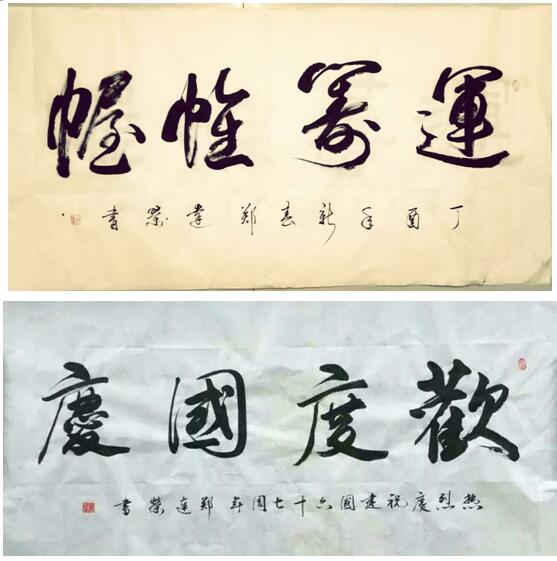 運籌帷幄
丁酉年新春郑達榮書
歡度國慶
热烈慶祝建國六十七周年郑達榮書